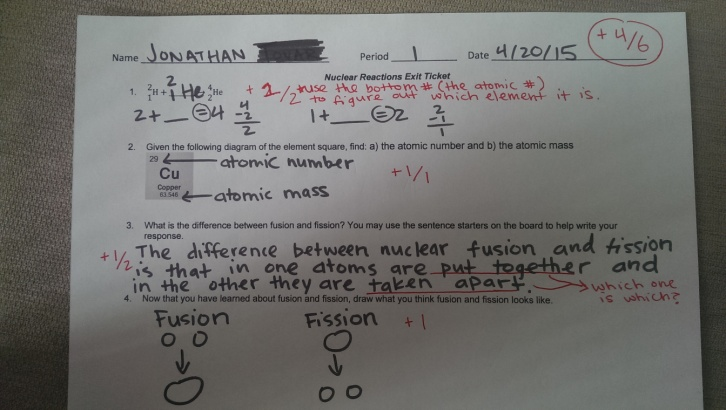 Name JONATHAN Period 1 Date 4/20/15 +4/6
Nuclear Reactions Exit Ticket
1. ²₁H + ²₁He ⁴₂He +1/2 *use the bottom # (the atomic #)
to figure out which element it is.
2+__=4 4-2 2 1+__=2 2-1 1
2. Given the following diagram of the element square, find: a) the atomic number and b) the atomic mass
29 atomic number
Cu +1/1
Copper
63.546 atomic mass
3. What is the difference between fusion and fission? You may use the sentence starters on the board to help write your
response.
+1/2 The difference between nuclear fusion and fission
is that in one atoms are put together and
in the other they are taken apart. which one
is which?
4. Now that you have learned about fusion and fission, draw what you think fusion and fission looks like.
Fusion Fission +1